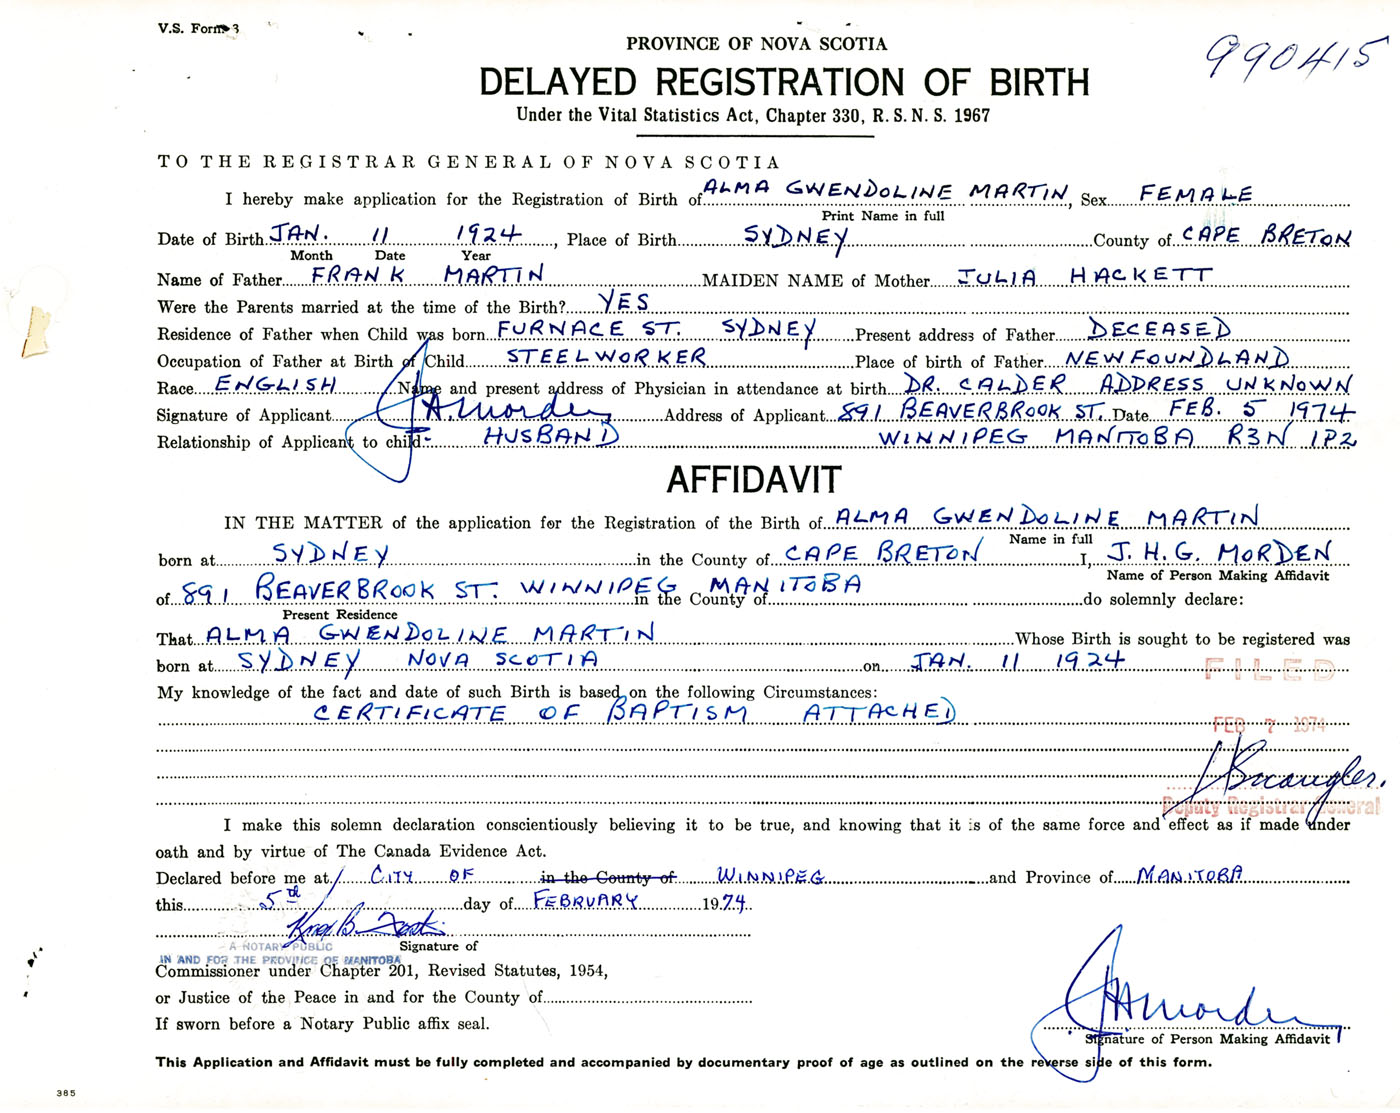 V.S. Form 3
990415
PROVINCE OF NOVA SCOTIA
DELAYED REGISTRATION OF BIRTH
Under the Vital Statistics Act, Chapter 330, R.S.N.S. 1967
TO THE REGISTRAR GENERAL OF NOVA SCOTIA
I hereby make application for the Registration of Birth of ALMA GWENDOLINE MARTIN, Sex FEMALE
Print Name in full
Date of Birth JAN. 11 1924, Place of Birth SYDNEY County of CAPE BRETON
Month Date Year
Name of Father FRANK MARTIN MAIDEN NAME of Mother JULIA HACKETT
Were the Parents married at the time of the Birth? YES
Residence of Father when Child was born FURNACE ST. SYDNEY Present address of Father DECEASED
Occupation of Father at Birth of Child STEELWORKER Place of birth of Father NEWFOUNDLAND
Race ENGLISH Name and present address of Physician in attendance at birth DR. CALDER ADDRESS UNKNOWN
Signature of Applicant J.H.Morden Address of Applicant 891 BEAVERBROOK ST. Date FEB. 5 1974
Relationship of Applicant to child- HUSBAND WINNIPEG MANITOBA R3N 1P2
AFFIDAVIT
IN THE MATTER of the application for the Registration of the Birth of ALMA GWENDOLINE MARTIN
Name in full
born at SYDNEY in the County of CAPE BRETON I, J.H.G. MORDEN
Name of Person Making Affidavit
of 891 BEAVERBROOK ST. WINNIPEG MANITOBA in the County of do solemnly declare:
Present Residence
That ALMA GWENDOLINE MARTIN Whose Birth is sought to be registered was
born at SYDNEY NOVA SCOTIA on JAN. 11 1924
FILED
My knowledge of the fact and date of such Birth is based on the following Circumstances:
CERTIFICATE OF BAPTISM ATTACHED
FEB 7 1974
Deputy Registrar General
I make this solemn declaration conscientiously believing it to be true, and knowing that it is of the same force and effect as if made under
oath and by virtue of The Canada Evidence Act.
Declared before me at CITY OF in the County of WINNIPEG and Province of MANITOBA
this 5th day of FEBRUARY 1974
Signature of
A NOTARY PUBLIC
IN AND FOR THE PROVINCE OF MANITOBA
Commissioner under Chapter 201, Revised Statutes, 1954,
or Justice of the Peace in and for the County of
If sworn before a Notary Public affix seal.
J.H.Morden
Signature of Person Making Affidavit
This Application and Affidavit must be fully completed and accompanied by documentary proof of age as outlined on the reverse side of this form.
385